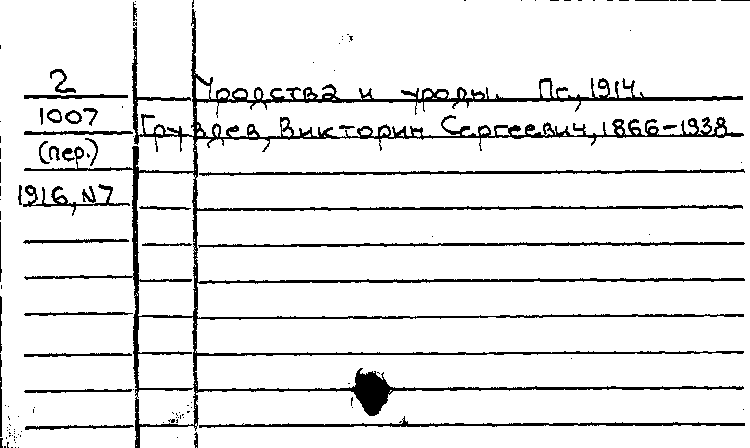 2 Уродства и уроды. Пг., 1914.
1007 Груздев, Викторин Сергеевич, 1866-1938
(пер.)
1916, N7